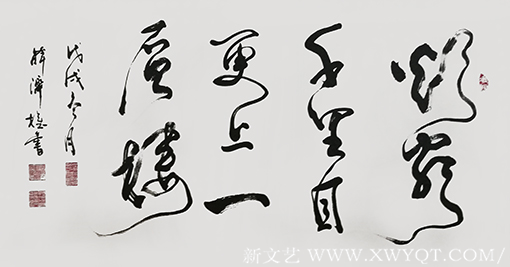 欲穷
千里目
更上一
层楼
戊戌冬月
新文艺 WWW.XWYQT.COM/